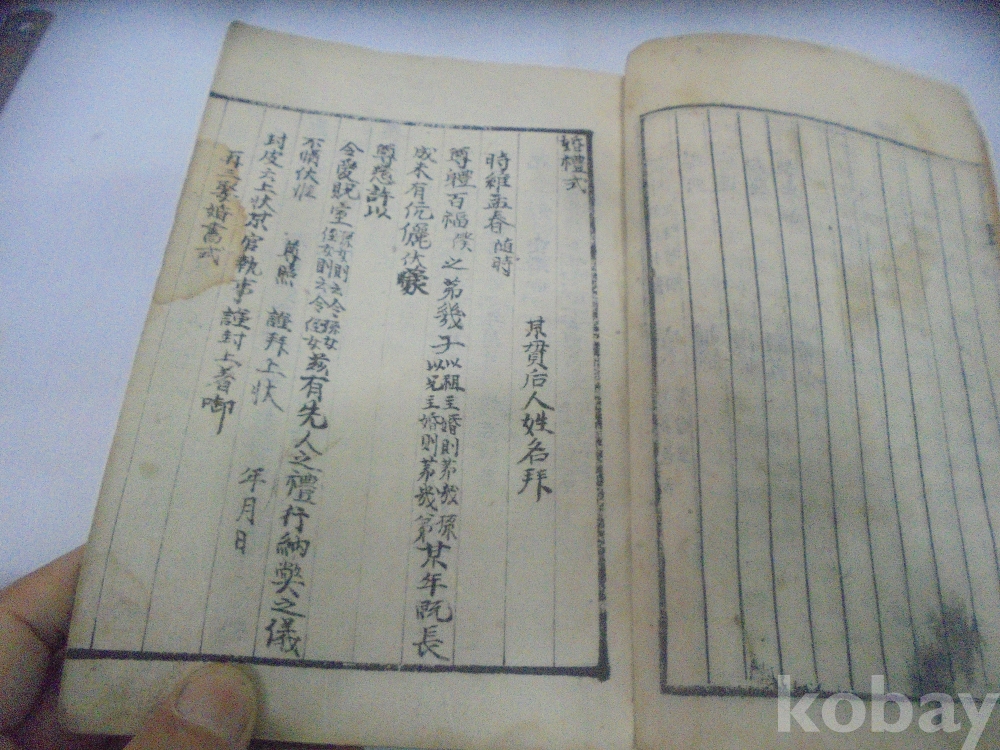 婚禮式
時維孟春 随時
某貫后人姓名拜
尊體百福僕之苐幾子以祖主婚則苐幾孫 以兄主婚則苐幾第某年旣長
成未有伉儷伏蒙
尊慈許以
令愛貺室孫女則云令孫女 侄女則云令侄女茲有先人之禮行納幣之儀
不備伏惟 尊照 謹拜上狀 年月日
封皮云上狀京官執事謹封上着啣
再三娶婚舊式
kobay